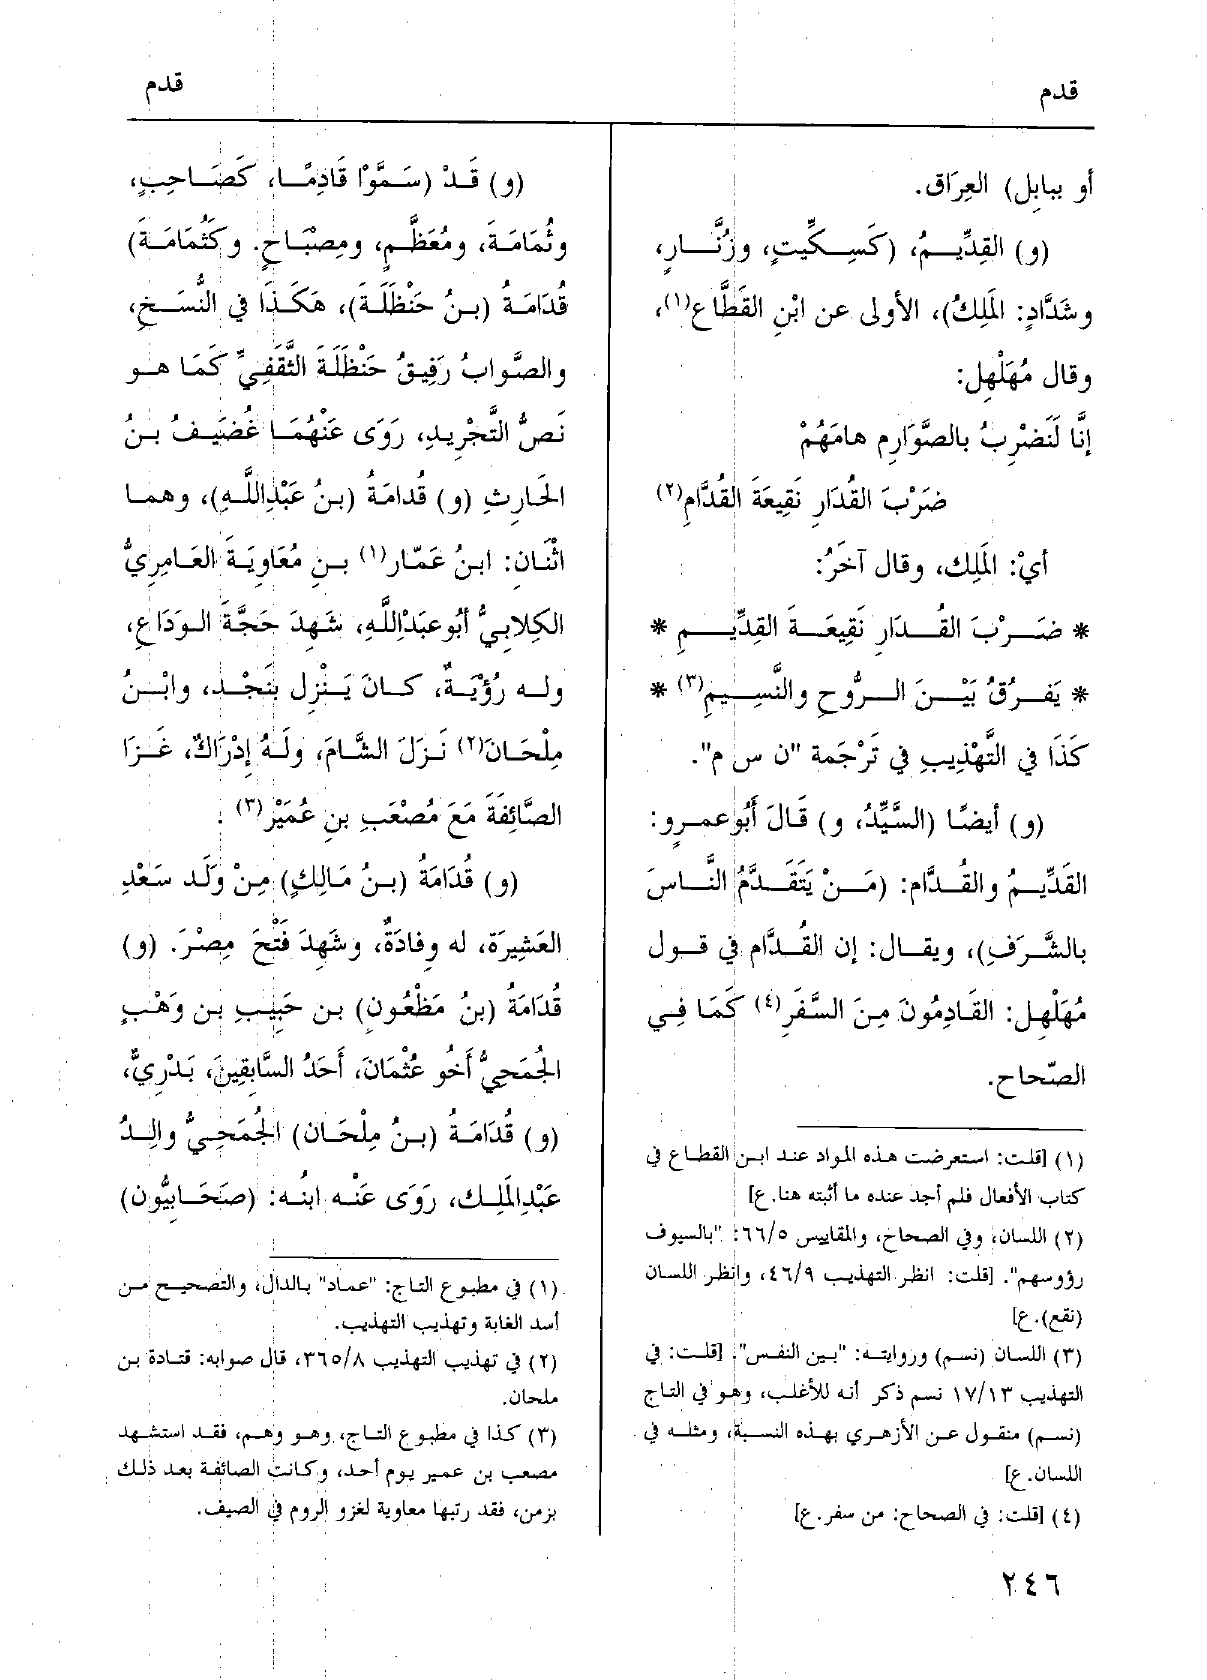 قدم
قدم
أو ببابل) العِرَاق.
(و) القِدِّيمُ، (كَسِكِّيتٍ، وزُنَّارٍ،
وشَدَّادٍ: المَلِكُ)، الأولى عن ابْنِ القَطَّاع(١)،
وقال مُهَلْهِل:
إنَّا لَنَضْرِبُ بالصَّوَارِم هامَهُمْ
ضَرْبَ القُدَارِ نَقِيعَةَ القُدَّامِ(٢)
أيْ: المَلِك، وقال آخَرُ:
* ضَرْبَ القُدَارِ نَقِيعَةَ القِدِّيمِ *
* يَفرُقُ بَيْنَ الرُّوحِ والنَّسِيمِ(٣) *
كَذَا في التَّهْذِيبِ في تَرْجَمة "ن س م".
(و) أيضًا (السَّيِّدُ، و) قَالَ أَبُوعمرو:
القَدِّيمُ والقُدَّام: (مَنْ يَتَقَدَّمُ النَّاسَ
بالشَّرَفِ)، ويقال: إن القُدَّام في قول
مُهَلْهِل: القَادِمُونَ مِنَ السَّفَرِ(٤) كَمَا فِي
الصّحاح.
(١) [قلت: استعرضت هذه المواد عند ابن القطاع في
كتاب الأفعال فلم أجد عنده ما أثبته هنا. ع]
(٢) اللسان، وفي الصحاح، والمقاييس ٦٦/٥: "بالسيوف
رؤوسهم". [قلت: انظر التهذيب ٤٦/٩، وانظر اللسان
(نقع). ع]
(٣) اللسان (نسم) وروايته: "بين النفس". [قلت: في
التهذيب ١٧/١٣ نسم ذكر أنه للأغلب، وهو في التاج
(نسم) منقول عن الأزهري بهذه النسبة، ومثله في
اللسان. ع]
(٤) [قلت: في الصحاح: من سفر. ع]
(و) قَدْ (سَمَّوْا قَادِمًا، كَصَاحِبٍ،
وثُمَامَةَ، ومُعَظَّمٍ، ومِصْبَاحٍ. وكَثُمَامَةَ)
قُدَامَةُ (بنُ حَنْظَلَةَ)، هَكَذَا في النُّسَخِ،
والصَّوابُ رَفِيقُ حَنْظَلَةَ الثَّقَفِيِّ كَمَا هو
نَصُّ التَّجْرِيدِ، رَوَى عَنْهُمَا غُضَيفُ بنُ
الحَارِثِ (و) قُدامَةُ (بنُ عَبْدِاللَّهِ)، وهما
اثْنَانِ: ابنُ عَمَّار(١) بنِ مُعَاوِيَةَ العَامِرِيُّ
الكِلابِيُّ أبُوعَبْدِاللَّهِ، شَهِدَ حَجَّةَ الوَدَاعِ،
وله رُؤْيَةٌ، كَانَ يَنْزِل بنَجْد، وابْنُ
مِلْحَانَ(٢) نَزَلَ الشَّامَ، ولَهُ إدْرَاكٌ، غَزَا
الصَّائِفَةَ مَعَ مُصْعَبِ بنِ عُمَيْرٍ(٣).
(و) قُدَامَةُ (بنُ مَالِكٍ) مِنْ وَلَد سَعْدِ
العَشِيرَة، له وِفادَةٌ، وشَهِدَ فَتْحَ مِصْرَ. (و)
قُدَامَةُ (بنُ مَظْعُونِ) بن حَبِيبِ بن وَهْبٍ
الجُمَحِيُّ أخُو عُثْمَانَ، أَحَدُ السَّابِقِينَ، بَدْرِيٌّ،
(و) قُدَامَةُ (بنُ مِلْحَان) الجُمَحِيُّ والِدُ
عَبْدِالمَلِك، رَوَى عَنْه ابنُه: (صَحَابِيُّون)
(١) في مطبوع التاج: "عماد" بالدال، والتصحيح من
أسد الغابة وتهذيب التهذيب.
(٢) في تهذيب التهذيب ٣٦٥/٨، قال صوابه: قتادة بن
ملحان.
(٣) كذا في مطبوع التاج، وهو وهم، فقد استشهد
مصعب بن عمير يوم أحد، وكانت الصائفة بعد ذلك
بزمن، فقد رتبها معاوية لغزو الروم في الصيف.
٢٤٦